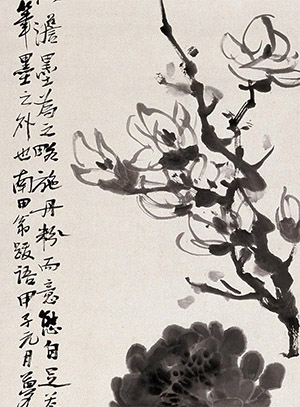 澹墨為之略施丹粉而意態自足
筆墨之外也南田翁跋語甲子元月